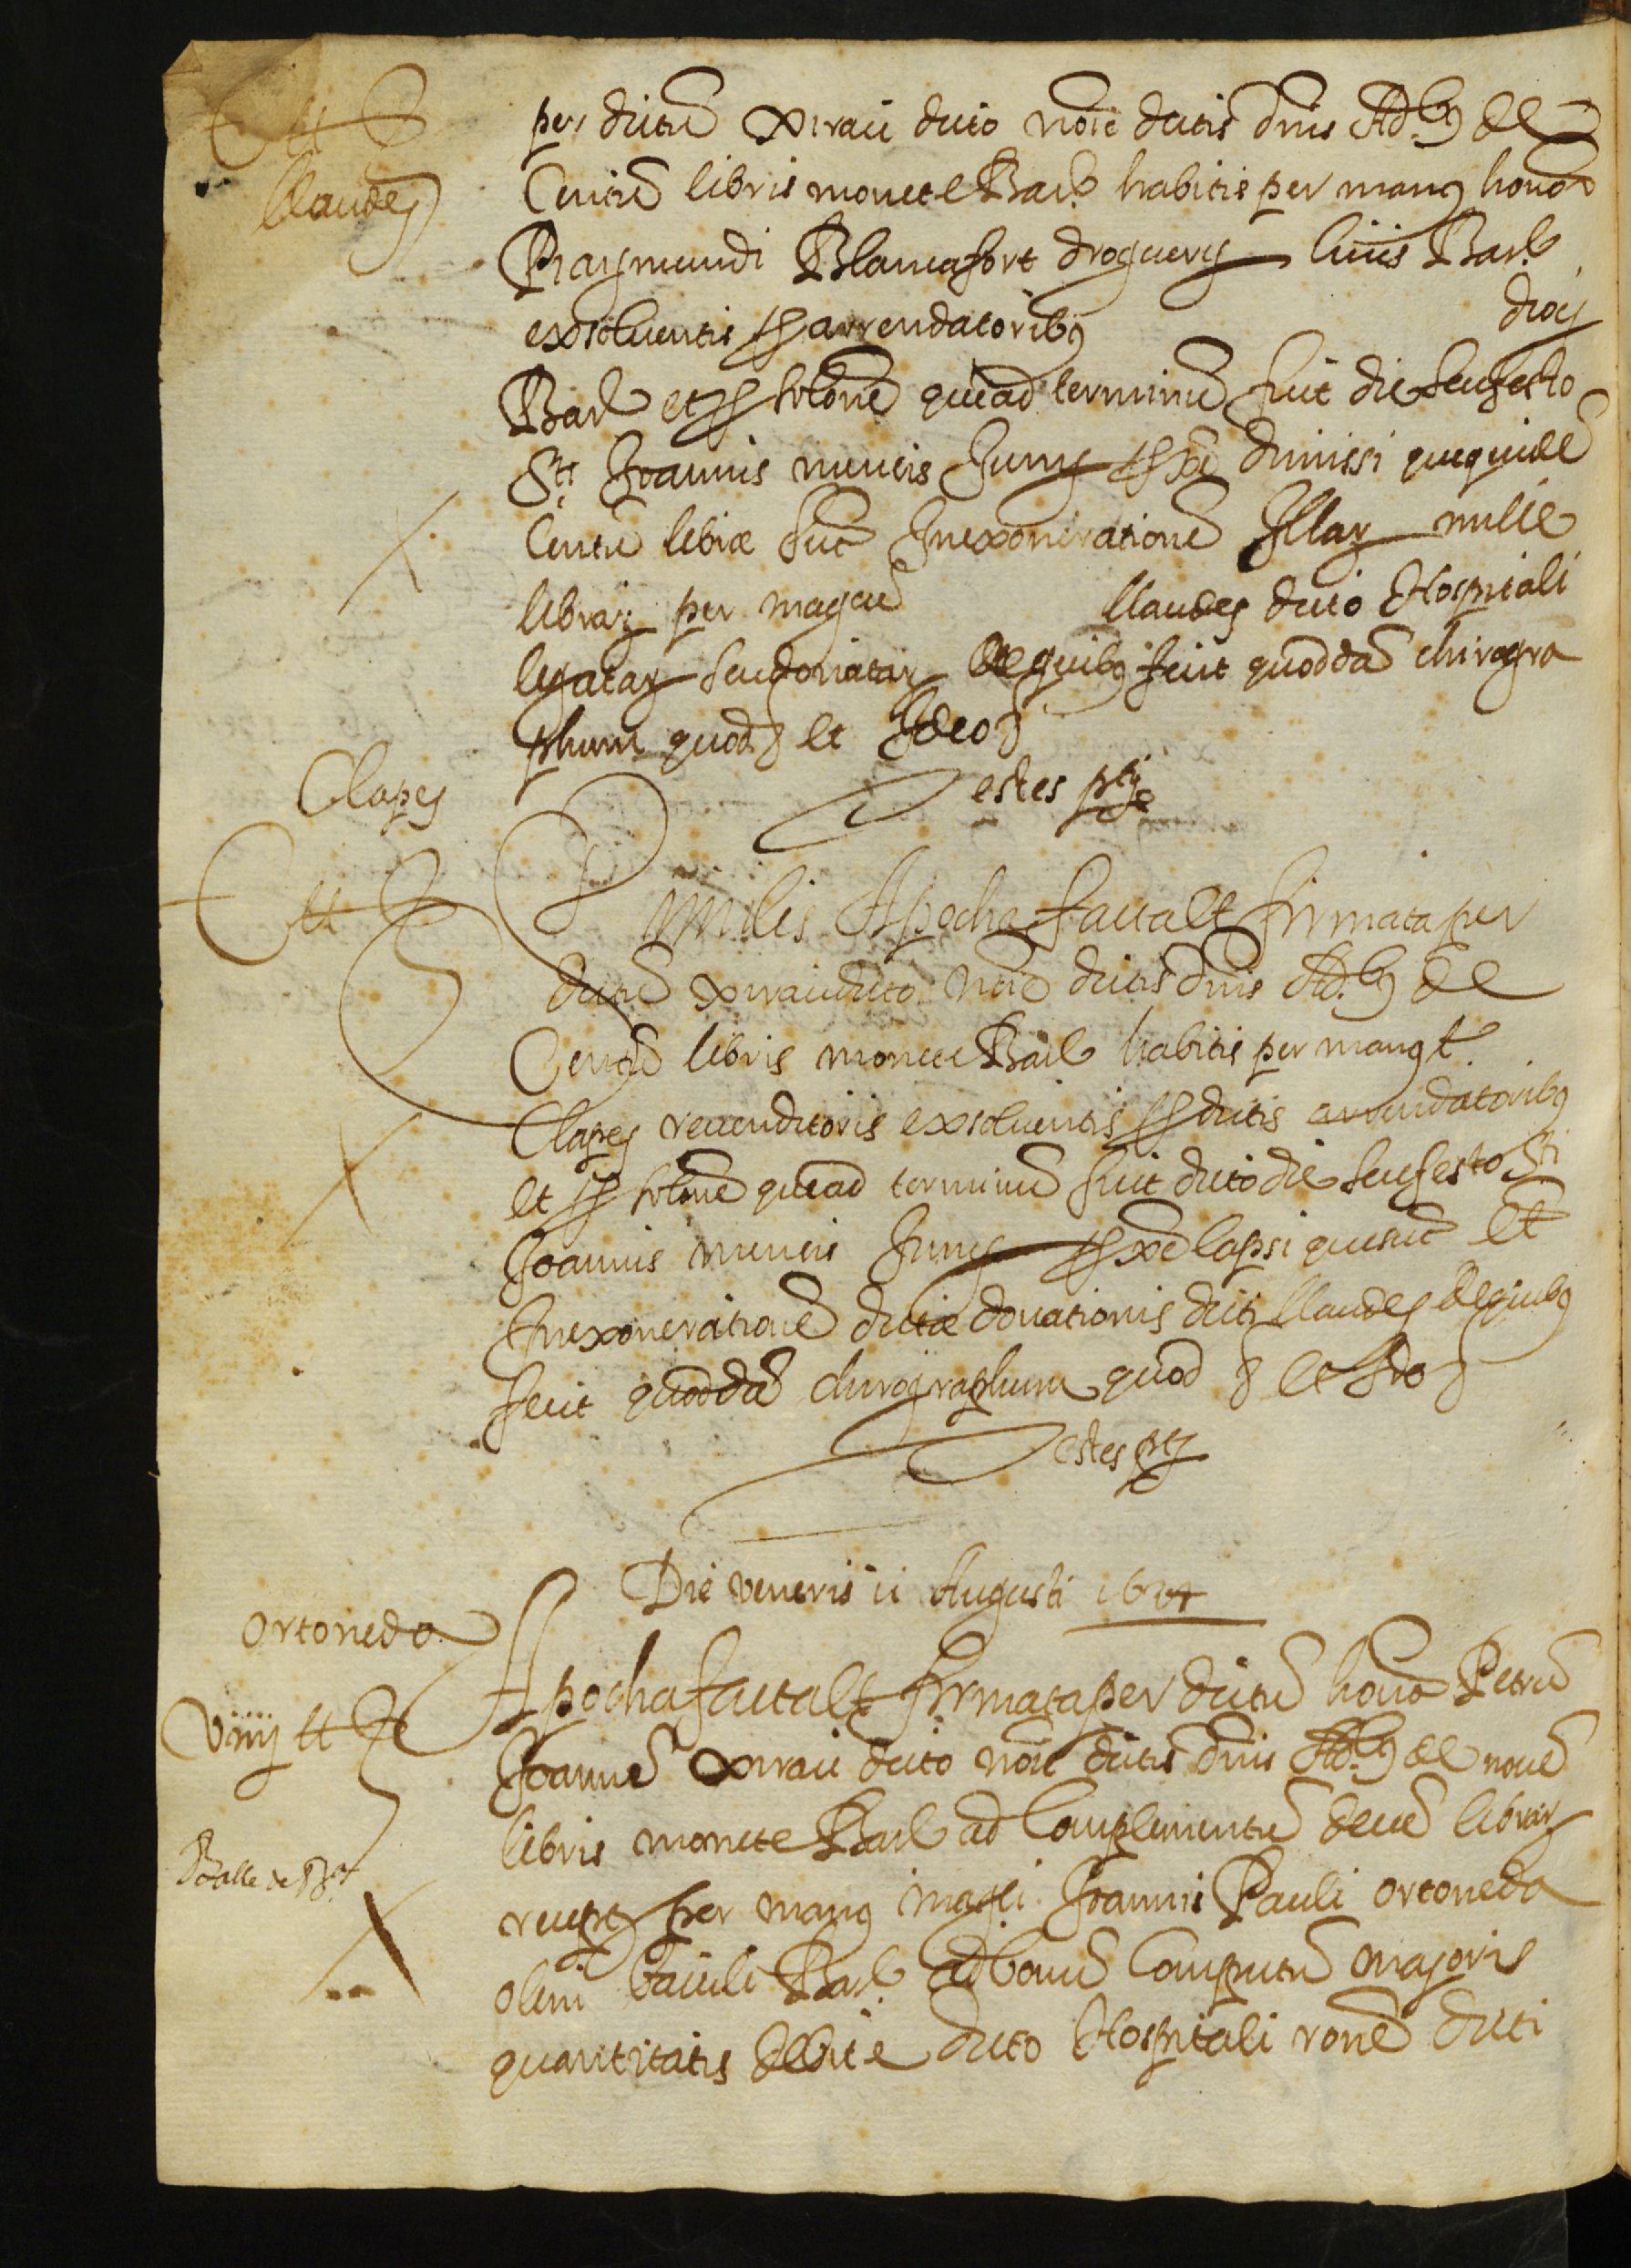 C ll
llaudes
per dictũ Xirau dicto noīe dictis dnīs Adᵇ9 de
Centũ libris monete Barᵉ habitis per manꝯ honoᵉ
Raymundi Blancafort droguerij civis Barᵉ
exsolventis ꝑ arrendatoribꝯ
diocˢ
Barᵉ et ꝑ solōne que ad terminũ fuit die seu festo
Sti Joannis mensis Junij dimissi que quidē
Centũ librae sũt In exonerationē Illaꝝ mille
libraꝝ per magcũ llaudes dicto Hospitali
legataꝝ seu donataꝝ De quibꝯ fecit quoddã chirogra
phum quod & et Ideo &
Testes p̄ti
Clapes
C ll
Similis Apocha facta et firmata per
dictũ Xirau dicto noīe dictis dnīs Adᵇ9 de
Centũ libris monete Barᵉ habitis per manꝯ t.
Clapes revenditoris exsolventis ꝑ dictis arrendatoribꝯ
et ꝑ solōne que ad terminũ fuit dicto die seu festo Sti
Joannis mensis Junij lapsi que sũt Et
In exonerationē dictae donationis dicti llaudes De quibꝯ
fecit quoddã chirographum quod & et Ideo &
Testes p̄ti
Die veneris 11 Augusti 1624
Ortoneda
Apocha facta et firmata per dictũ honoᵉ Petrũ
viiij ll
Joannē Xirau dicto noīe dictis dnīs Adᵇ9 de novē
libris monete Barᵉ ad Complementũ decē libraꝝ
Balle de Bᵃ
receptꝝ per manꝯ magci Joannis Pauli Ortoneda
olim baiuli Barᵉ ad bonũ Computũ majoris
quantitatis debite dicto Hospitali rōne dicti